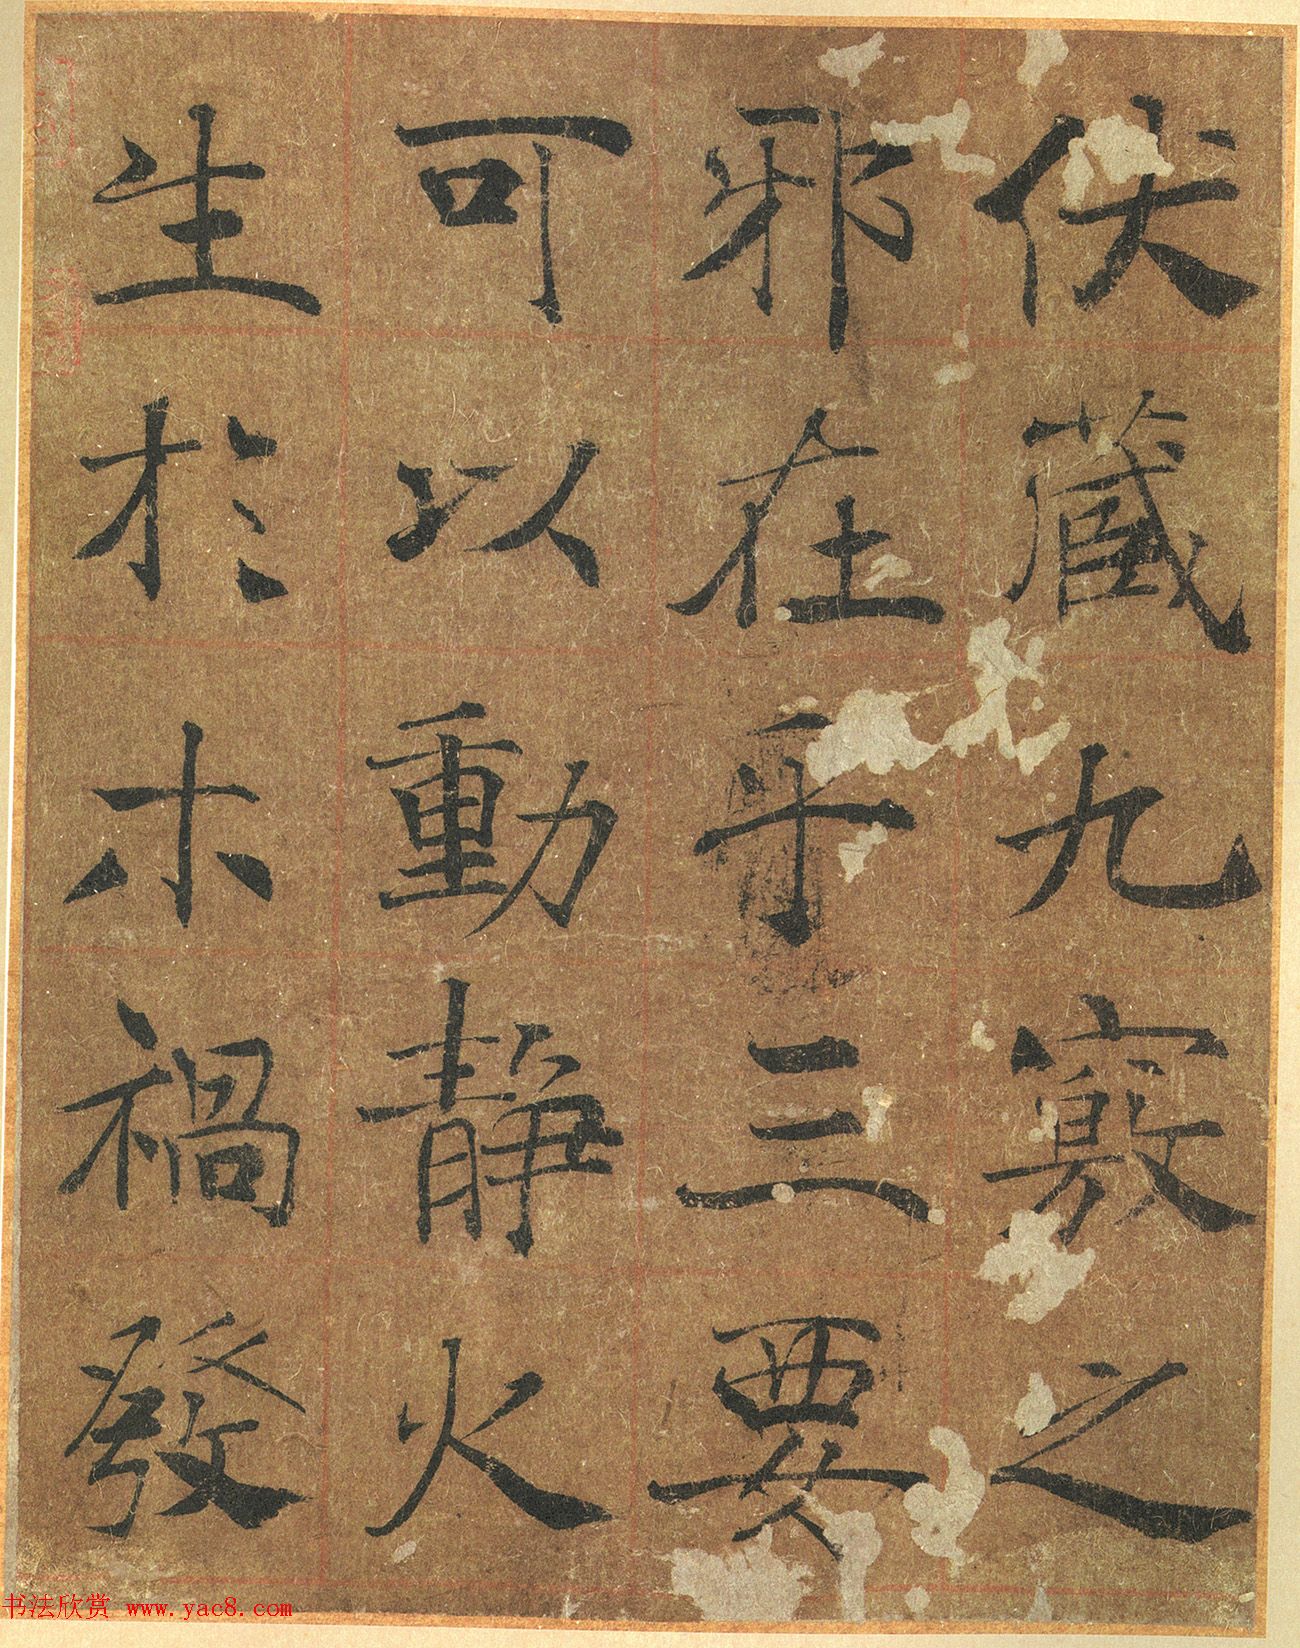 伏藏九竅之
邪在乎三要
可以動静火
生於木禍發
书法欣赏 www.yac8.com